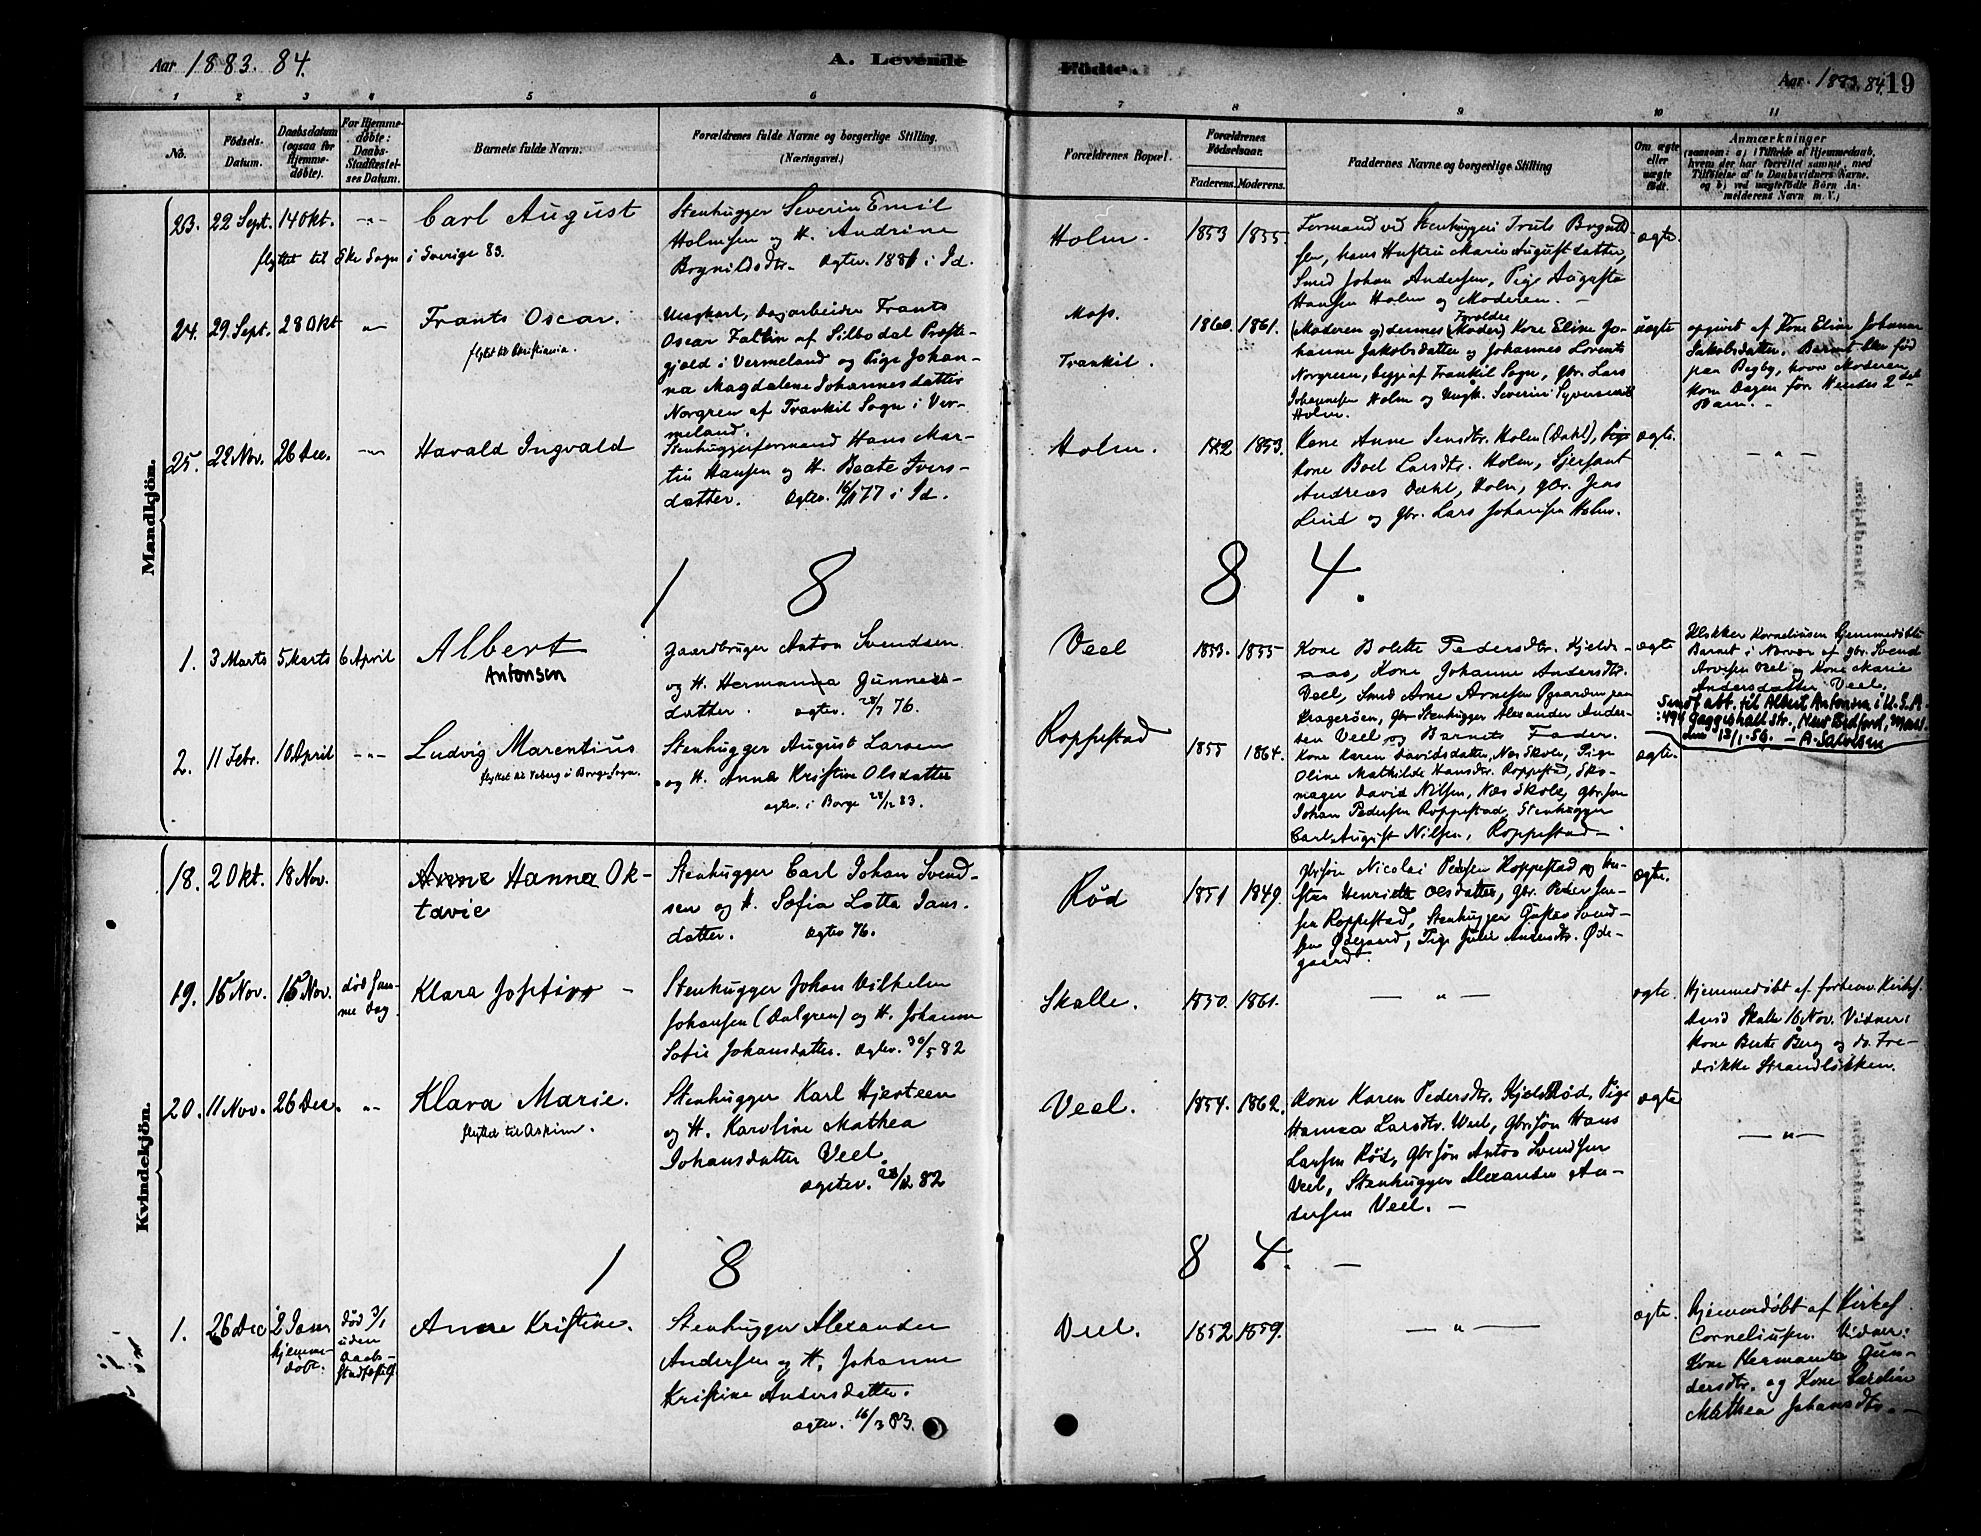 Aar 1883. 84.
A. Levende Fødte.
Aar 1883. 84. 19
1 2 3 4 5 6 7 8 9 10 11
No.
Fødsels-
Datum.
Daabsdatum
(ogsaa for
Hjemme-
døbte).
For Hjemme-
døbte:
Daabs-
Stadfæstel-
ses Datum.
Barnets fulde Navn.
Forældrenes fulde Navne og borgerlige Stilling.
(Næringsvei.)
Forældrenes Bopæl.
Forældrenes
Fødselsaar.
Faderens. Moderens.
Faddernes Navne og borgerlige Stilling
Om ægte
eller
uægte
født.
Anmærkninger
(saasom: a) i Tilfælde af Hjemmedaab,
hvem der har forrettet samme, med
Tilføielse af to Daabsvidners Navne.
og b) ved uægtefødte Børn An-
melderens Navn m. V.)
Mandkjön.
23. 22 Sept. 14 Okt. -"-
Carl August
flyttet til Sogn i Sverige 83.
Stenhugger Severin Emil
Holmsen og H. Andrine
Brynildsdtr. Ægtev. 1881 i Id.
Holm. 1853 1855.
Formand ved Stenhuggeri Truls Brynild-
sen, hans Hustru Marie Augustdatter,
Smed Johan Andersen, Pige Augusta
Hansen Holm og Moderen. —
ægte.
24. 29 Sept. 28 Okt "
Frants Oscar.
flyttet til Christiania.
Ungkarl, Dagarbeider Frants
Oscar Fallin af Silbodal Præste-
gjæld i Vermeland og Pige Johan-
na Magdalene Johannesdatter
Norgren af Trankil Sogn i Ver-
meland.
Moss.
Trankil.
1860. 1861.
(Moderen og) dennes Forældre (Moder) Kone Eline Jo-
hanne Jakobsdatter og Johannes Lorents
Norgreen, begge af Trankil Sogn, gbr. Lars
Johannesen Holm og Ungk. Severin Syversen
Holm.
uægte
opgivet af Kone Eline Johanne
Jakobsdatter. Barnet blev fød
paa Begby, hvor Moderen
kom Dagen før. Hendes 2det
Barn. —
25. 22 Nov. 26 Dec. -"-
Harald Ingvald
Stenhuggerformand Hans Mar-
tin Hansen og H. Beate Ivers-
datter. Ægtev. 16/1 77 i Id.
Holm. 1853.
Kone Anne Jensdtr. Holm (Dahl), Pige
Kone Boel Larsdtr. Holm, Sjersant
Andreas Dahl, Holm, gbr. Jens
Lind og gbr. Lars Johansen Holm.
ægte.
- " -
1 8 8 4.
1. 3 Marts 5 Marts 6 April
Albert
Antonsen
Gaardbruger Anton Svendsen
og H. Hermana Gunners-
datter. ægtev. 76.
Veel 1853. 1855
Kone Bolette Pedersdtr. Kjelds-
aas, Kone Johanne Andersdtr.
Veel, Smed Arne Arnesen Øgaarden paa
Kragerøen, gbr Stenhugger Alexander Ander-
sen Veel og Barnets Fader.
ægte
Klokker Korneliusen hjemmedøbte
Barnet i Nærvær af gbr. Svend
Arvesen Veel og Kone Marie
Andersdatter Veel.
Sendt att. til Albert Antonsen i U.S.A.
: 494 Goggeshall Str., New Bedford, Mass.
den 13/1-56. — A. Salvesen
2. 11 Febr. 10 April -"-
Ludvig Marentius
flyttet til Torsberg i Borge Sogn.
Stenhugger August Larsen
og H. Anna Kristine Olsdatter
ægtev. i Borge 28/12 83.
Roppestad 1855 1864.
Kone Karen Davidsdatter, Næs Skole, Pige
Oline Mathilde Hansdtr. Roppestad, Sko-
mager David Nilsen, Næs Skole, gbrsøn
Johan Pedersen Roppestad, Stenhugger
Carl August Nilsen, Roppestad —
ægte.
Kvindekjön.
18. 2 Okt. 18 Nov.
Anne Hanna Ok-
tavie
Stenhugger Carl Johan Svend-
sen og H. Sofia Lotta Jans-
datter. Ægtev 76.
Rød 1851 1849.
Gbrsøn Nicolai Pedersen Roppestad og Hu-
stru Henriette Olsdatter, gbr. Peder Jen-
sen Roppestad, Stenhugger Gustav Svend-
sen Ødegaard, Pige Julie Andersdtr. Øde-
gaard.
ægte.
19. 15 Nov. 15 Nov.
død sam-
me Dag.
Klara Josefine —
Stenhugger Johan Vilhelm
Johansen (Dalgren) og H. Johanne
Sofie Johansdatter. Ægtev. 30/5 82
Skalle. 1850. 1861.
— " —
ægte.
Hjemmedøbt af Kirkes.
Skalle 16 Nov. Vidner:
Kone Berte Berg og do. Fre-
drikke Strandløkken.
20. 11 Nov. 26 Dec. -"-
Klara Marie.
flyttet til Askim.
Stenhugger Karl Hjersteen
og H. Karoline Mathea
Johansdatter Veel.
ægtev. 28/12 82
Veel. 1854. 1862.
Kone Karen Pedersdtr. Kjels Rød, Pige
Hanna Larsdtr. Veel, gbrsøn Hans
Larsen Rød, gbrsøn Anton Svendsen
Veel, Stenhugger Alexander An-
dersen Veel. —
ægte
— " —
1 8 8 4. —
1. 26 Dec 2 Janr
hjemme-
døbt.
død 3/1
uden
Daabs-
stadfæstelse
Anna Kristine.
Stenhugger Alexander
Andersen og H. Johanne
Kristine Andersdatter.
ægtev. 16/3 83.
Veel. 1852 1859.
— " —
ægte.
Hjemmedøbt af Kirkes.
Corneliusen. Vidner:
Kone Hermana Gun-
dersdtr. og Kone Karoline
Mathea Johansdtr. —